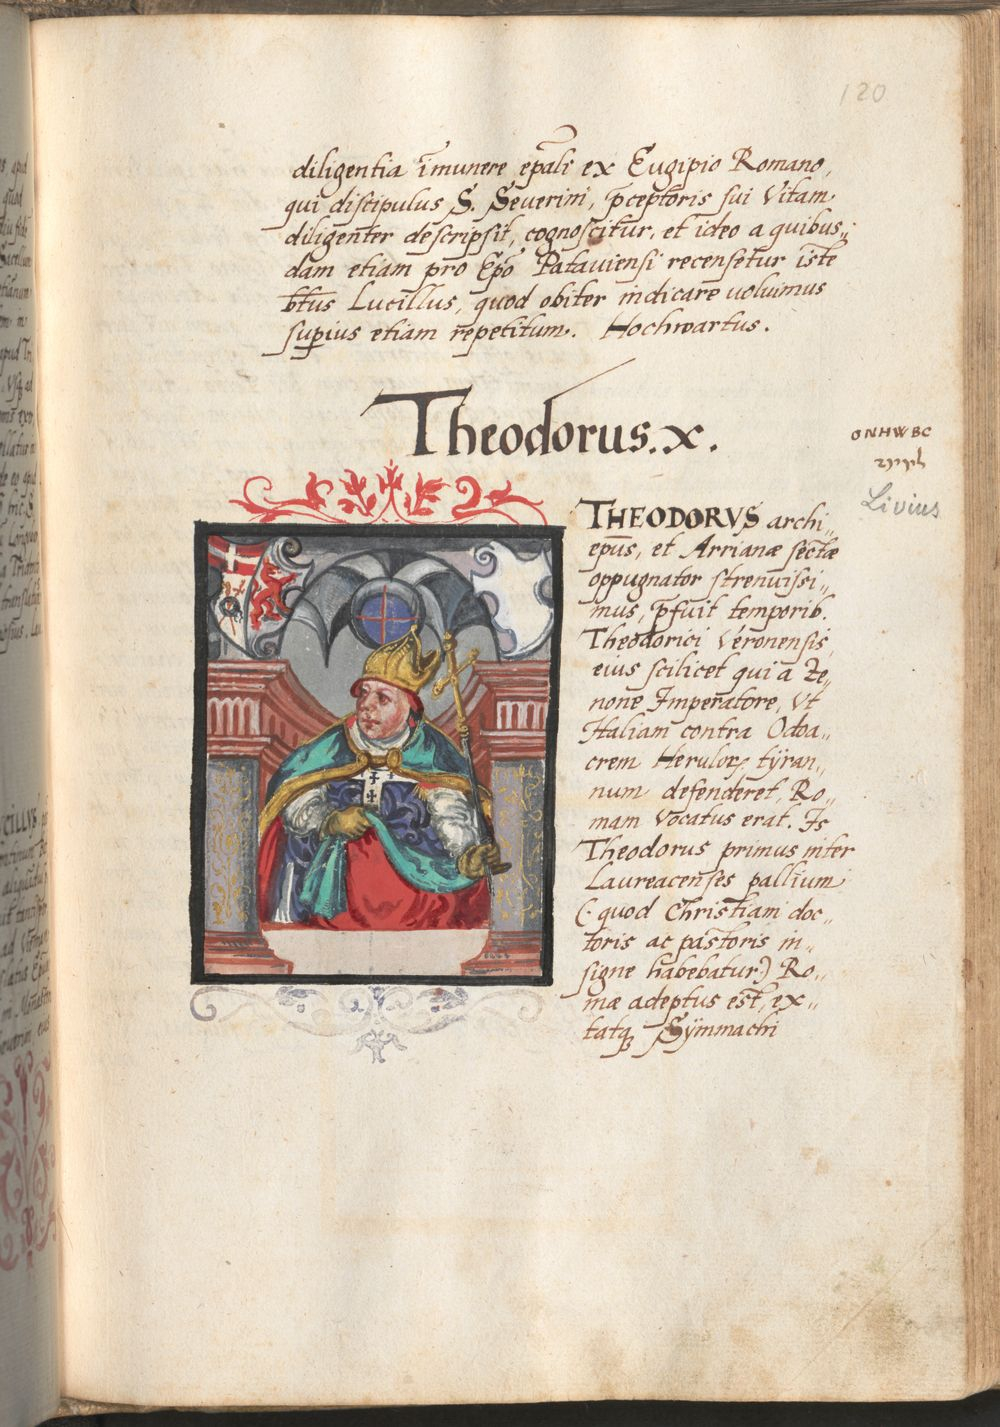 120
diligentia īmunere ep̄ali ex Eugipio Romano,
qui discipulus S. Seuerini, p̄ceptoris sui Vitam
diligenter descripsit, cognoscitur, et ideo a quibus„
dam etiam pro Ep̄o Patauiensi recensetur iste
bt̄us Lucillus, quod obiter indicare uoluimus
suꝑius etiam repetitum. Hochwartus.
Theodorus. x.
ONHWBC
Livius
THEODORVS archi„
ep̄us, et Arrianæ sectæ
oppugnator strenuissi„
mus, p̄fuit temporib.
Theodorici Veronensis,
eius scilicet qui a Ze„
none Imperatore, Vt
Italiam contra Odoa„
crem Heruloꝝ tÿran„
num defenderet, Ro„
mam Vocatus erat. Is
Theodorus primus inter
Laureacenses pallium
(: quod Christiani doc„
toris ac pastoris in„
signe habebatur:) Ro„
mæ adeptus est, ex„
tatqꝫ Sÿmmachi